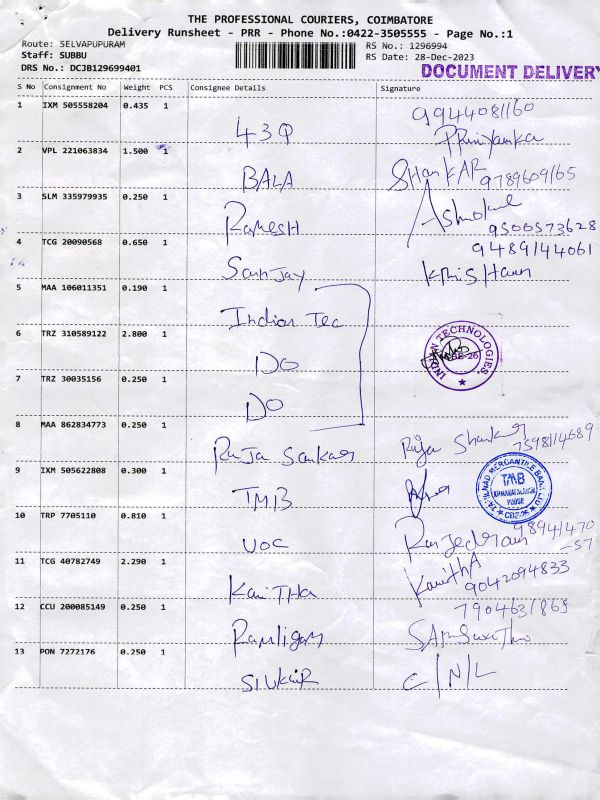 THE PROFESSIONAL COURIERS, COIMBATORE
Delivery Runsheet - PRR - Phone No.:0422-3505555 - Page No.:1
Route: SELVAPUPURAM
RS No.: 1296994
Staff: SUBBU
RS Date: 28-Dec-2023
DRS No.: DCJB129699401
DOCUMENT DELIVERY
S No Consignment No Weight PCS Consignee Details Signature
1 IXM 505558204 0.435 1
9944081160
43Q
Priyanka
2 VPL 221063834 1.500 1
BALA
SHANKAR
9789609165
3 SLM 335979935 0.250 1
RAMESH
Ashok
9500573628
4 TCG 20090568 0.650 1
9489144061
Sanjay
5 MAA 106011351 0.190 1
Indian Tec
6 TRZ 310589122 2.800 1
DO
INDIAN TECHNOLOGIES
7 TRZ 30035156 0.250 1
DO
8 MAA 862834773 0.250 1
Raja Sankar
Raja Shankar
7598114689
9 IXM 505622808 0.300 1
TMB
TAMILNAD MERCANTILE BANK LTD
TMB
10 TRP 7705110 0.810 1
UOC
98941470
-57
11 TCG 40782749 2.290 1
KaviTHa
KavithA
9042094833
12 CCU 200085149 0.250 1
7904631869
Ramligam
13 PON 7272176 0.250 1
C/N/L